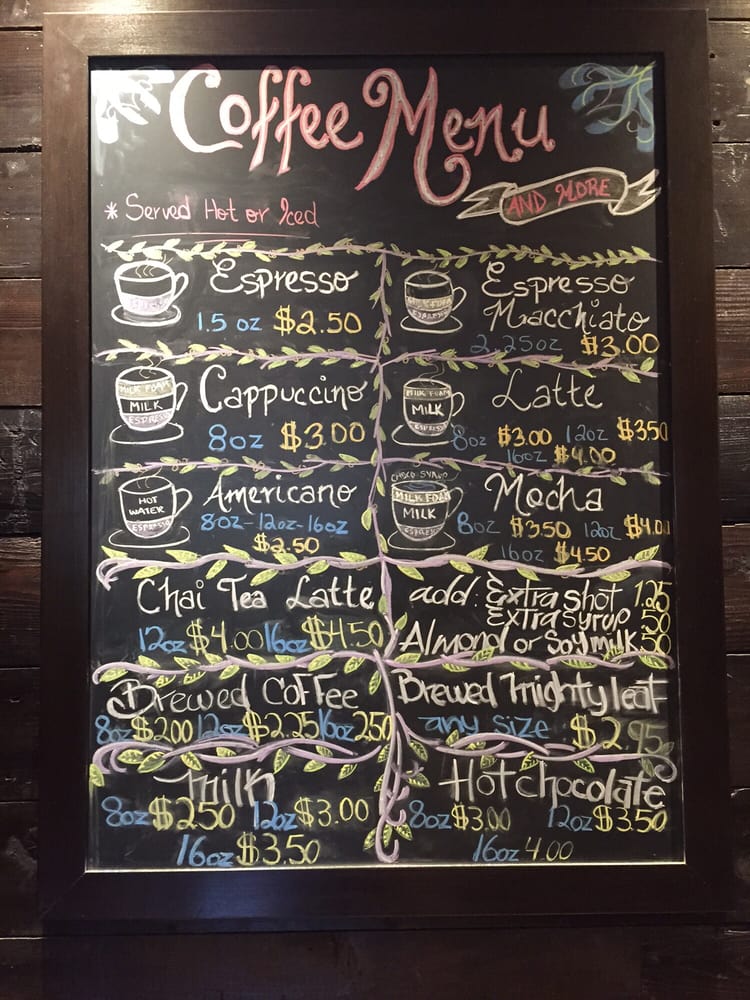 Coffee Menu
AND MORE
* Served Hot or Iced
Espresso
1.5 oz $2.50
Espresso
Macchiato
2.25oz $3.00
MILK FOAM
ESPRESSO
Cappuccino
8oz $3.00
MILK FOAM
MILK
ESPRESSO
Latte
8oz $3.00 12oz $3.50
16oz $4.00
MILK FOAM
MILK
ESPRESSO
Americano
8oz-12oz-16oz
$2.50
HOT
WATER
ESPRESSO
Mocha
8oz $3.50 12oz $4.00
16oz $4.50
CHOCO SYRUP
MILK FOAM
MILK
ESPRESSO
Chai Tea Latte
12oz $4.00 16oz $4.50
add: Extra shot 1.25
Extra syrup .50
Almond or Soy milk .50
Brewed Coffee
8oz $2.00 12oz $2.25 16oz 2.50
Brewed mighty leaf
any size $2.95
milk
8oz $2.50 12oz $3.00
16oz $3.50
Hot chocolate
8oz $3.00 12oz $3.50
16oz 4.00